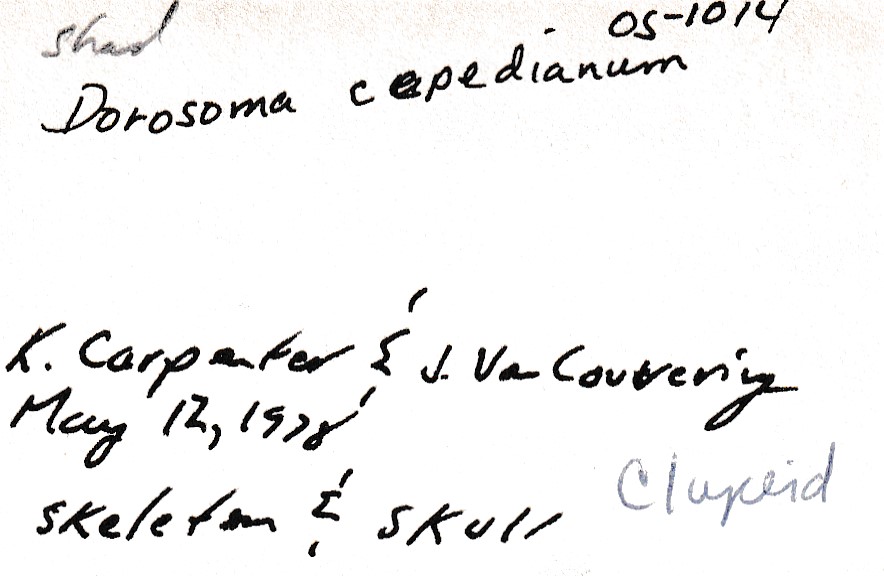 shad
OS-1014
Dorosoma cepedianum
K. Carpenter & J. Van Couvering
May 12, 1978
skeleton & skull
Clupeid